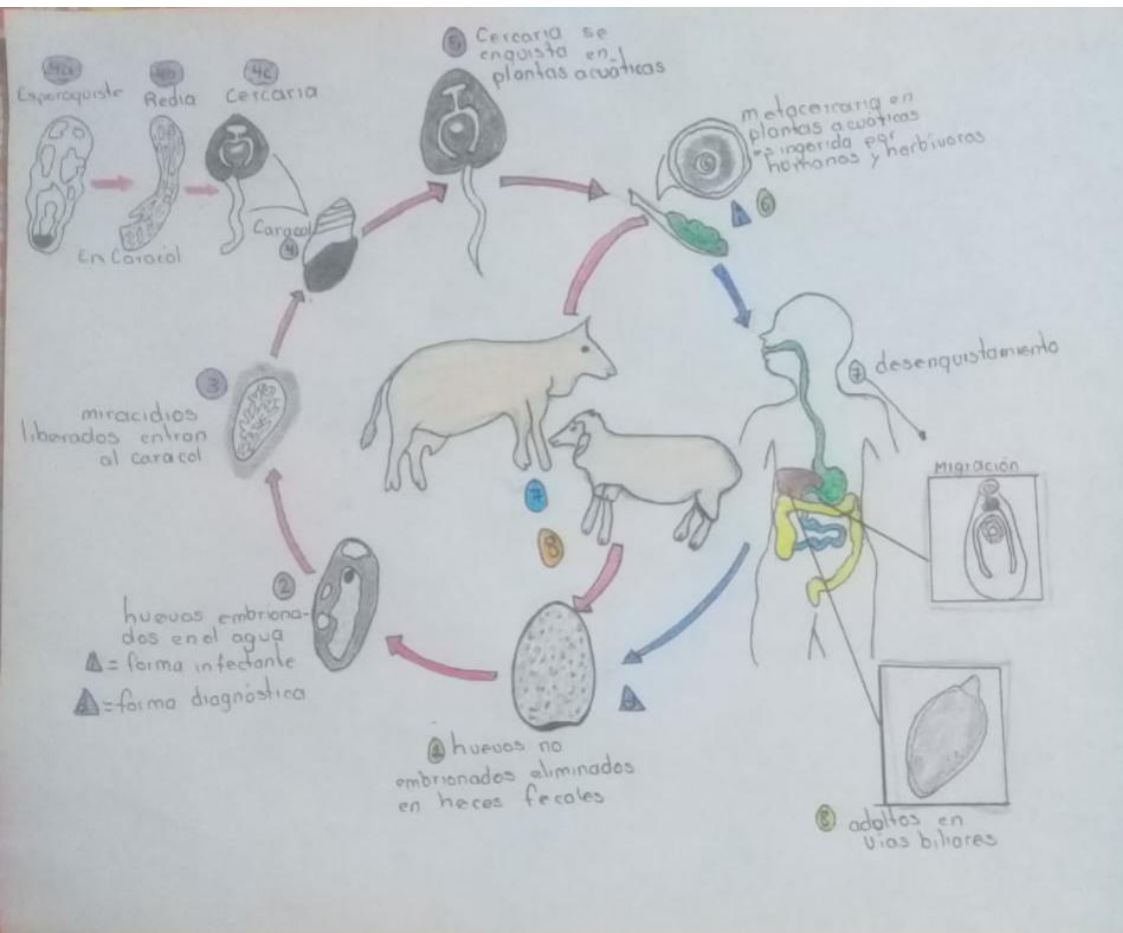 4a
Esporoquiste
4b
Redia
4c
Cercaria
En Caracol
Caracol
4
5 Cercaria se
enquista en
plantas acuáticas
metacercaria en
plantas acuáticas
es ingerida por
humanos y herbívoros
6
7 desenquistamiento
Migración
3
miracidios
liberados entran
al caracol
7
8
2
huevos embriona-
dos en el agua
= forma infectante
= forma diagnóstica
1 huevos no
embrionados eliminados
en heces fecales
8 adultos en
vias biliares